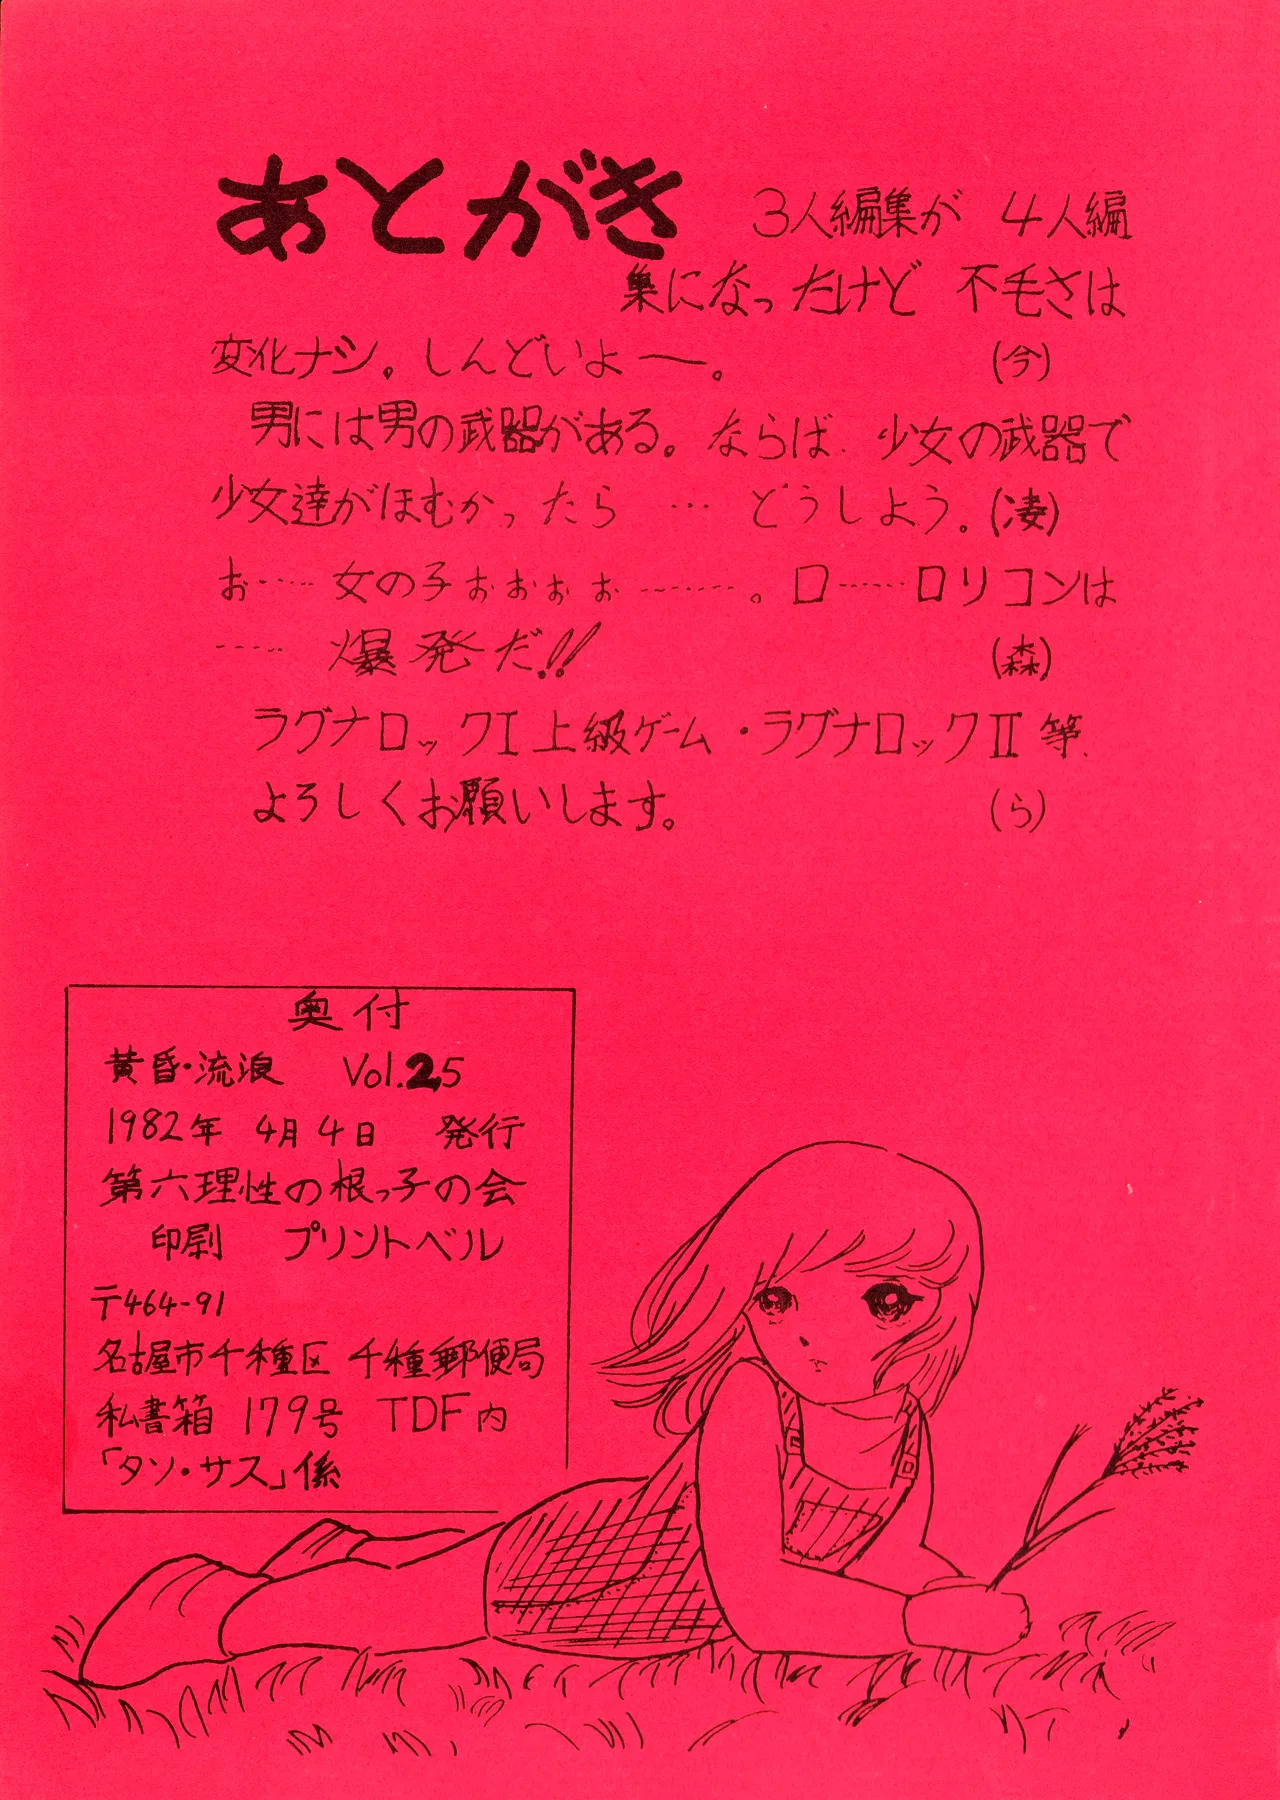 あとがき
3人編集が 4人編
集になったけど 不毛さは
変化ナシ。しんどいよー。 (今)
男には男の武器がある。ならば、少女の武器で
少女達がほむかったら … どうしよう。(凄)
お…… 女の子ぉぉぉぉ ………。ロ……ロリコンは
…… 爆発だ!! (森)
ラグナロックⅠ上級ゲーム・ラグナロックⅡ 等、
よろしくお願いします。 (ら)
奥付
黄昏・流浪 Vol.25
1982年 4月4日 発行
第六理性の根っ子の会
印刷 プリントベル
〒464-91
名古屋市千種区 千種郵便局
私書箱 179号 TDF内
「タソ・サス」係